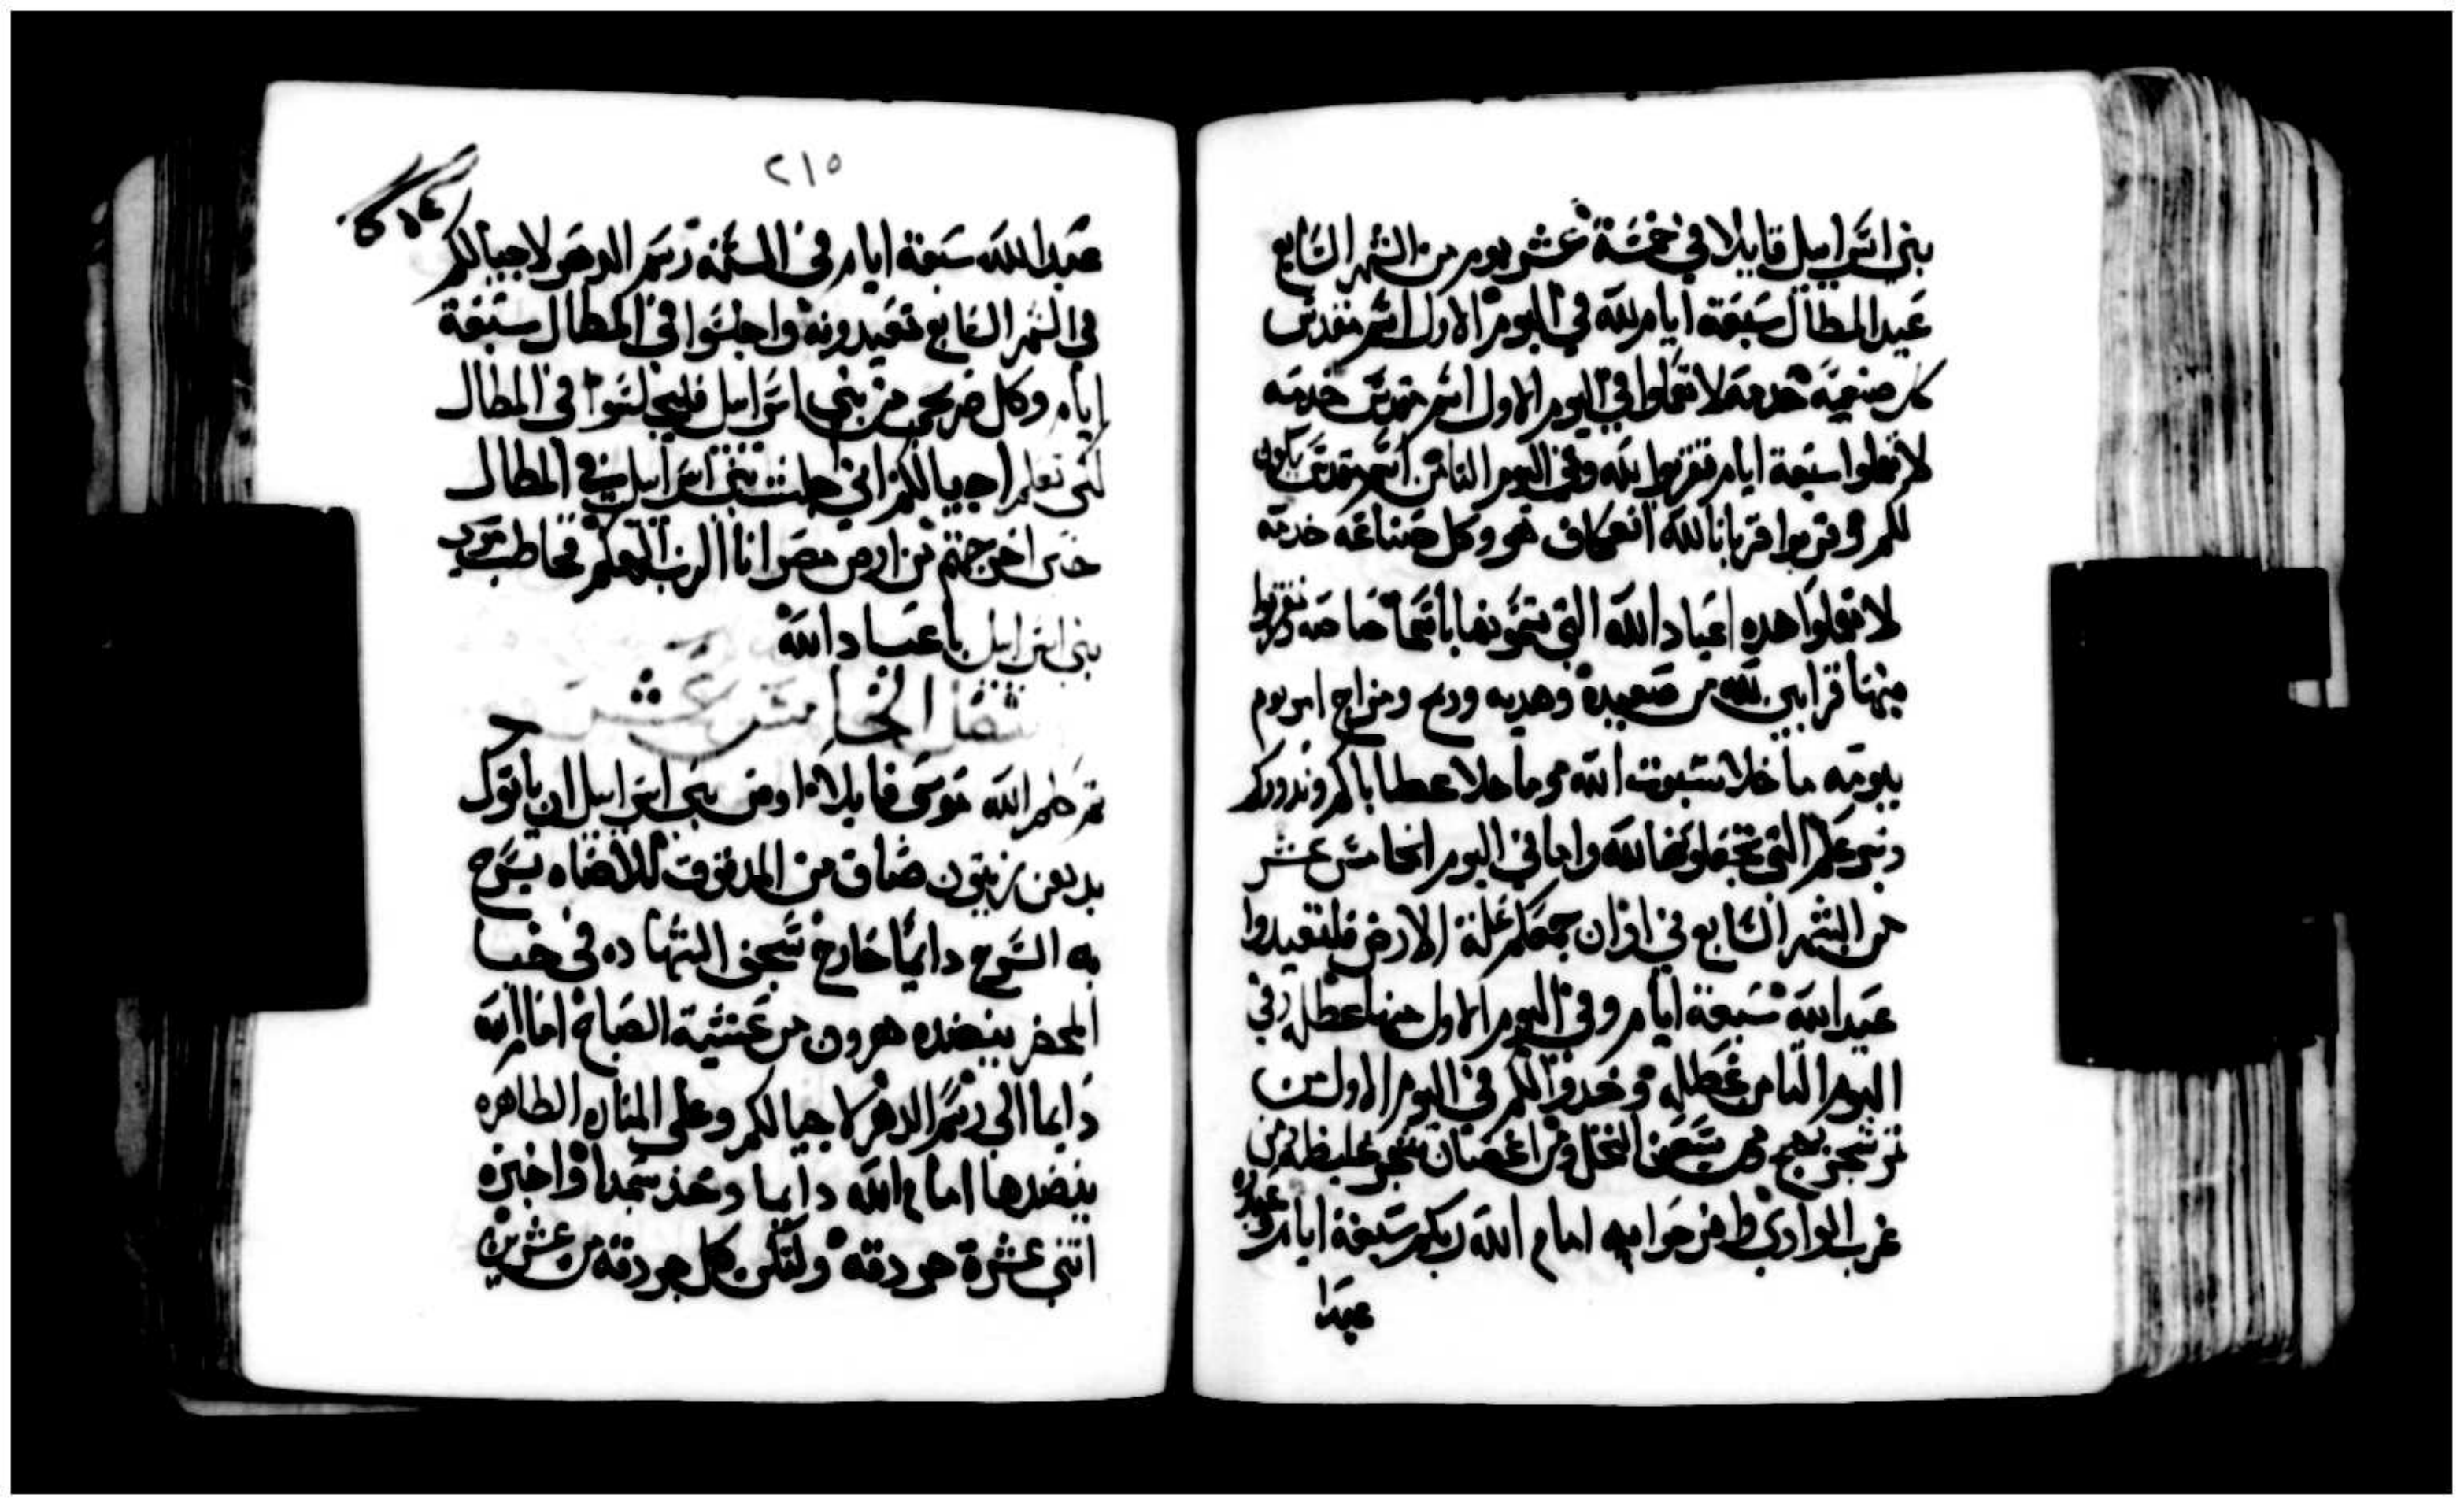 بني اسراييل قايلا في خمسة عشر يوم من الشهر السابع
عيد المطال سبعة ايام لله في اليوم الاول اسم مقدس
كل صنعة خدمة لا تعملوا في اليوم الاول اسم مقدس خدمه
لا تعملوا سبعة ايام تقربوا لله وفي اليوم الثامن اسم مقدس يكون
لكم وقربوا قربانا لله انعكاف هو وكل صناعه خدمه
لا تعملوا هده اعياد الله التي تسمونها باسما خاصه تقربوا
منها قرابين لله من صعيدة وهديه ودبح ومزاج امر يوم
بيومه ما خلا سبوت الله وما خلا عطاياكم وندوركم
وتبرعكم التي تجعلونها لله واما في اليوم الخامس عشر
من الشهر السابع في اوان جمعكم غلة الارض فلتعيدوا
عيد الله سبعة ايام وفي اليوم الاول منها عطله وفي
اليوم الثامن عطله وخدوا لكم في اليوم الاول من
ثمر شجر بهج ومن سعف النخل ومن اغصان شجر غليظه ومن
غرب الوادي وافرحوا به امام الله ربكم سبعة ايام وعيدوه
عيدا
٢١٥
عيد الله سبعة ايام في السنه رسم الدهر لاجيالكم
في الشهر السابع تعيدونه واجلسوا في المطال سبعة
ايام وكل صريح من بني اسراييل فليجلسوا في المطال
لكي تعلم اجيالكم اني اجلست بني اسراييل في المطال
حتى اخرجتهم من ارض مصر انا الرب الهكم فخاطب موسى
بني اسراييل باعياد الله
فصل الخامس عشر
ثم كلم الله موسى قايلا اوصي بني اسراييل ان ياتوك
بدهن زيتون صاف من المدقوق للاضاه يسرج
به السرج دايما خارج سجف الشهاده في خبا
المحضر ينضده هرون من عشية الصباح امام الله
دايما الي رسم الدهر لاجيالكم وعلى المناره الطاهره
ينضدها امام الله دايما وخذ سميدا واخبزه
اثني عشرة جردقه ولتكن كل جردقه من عشرين